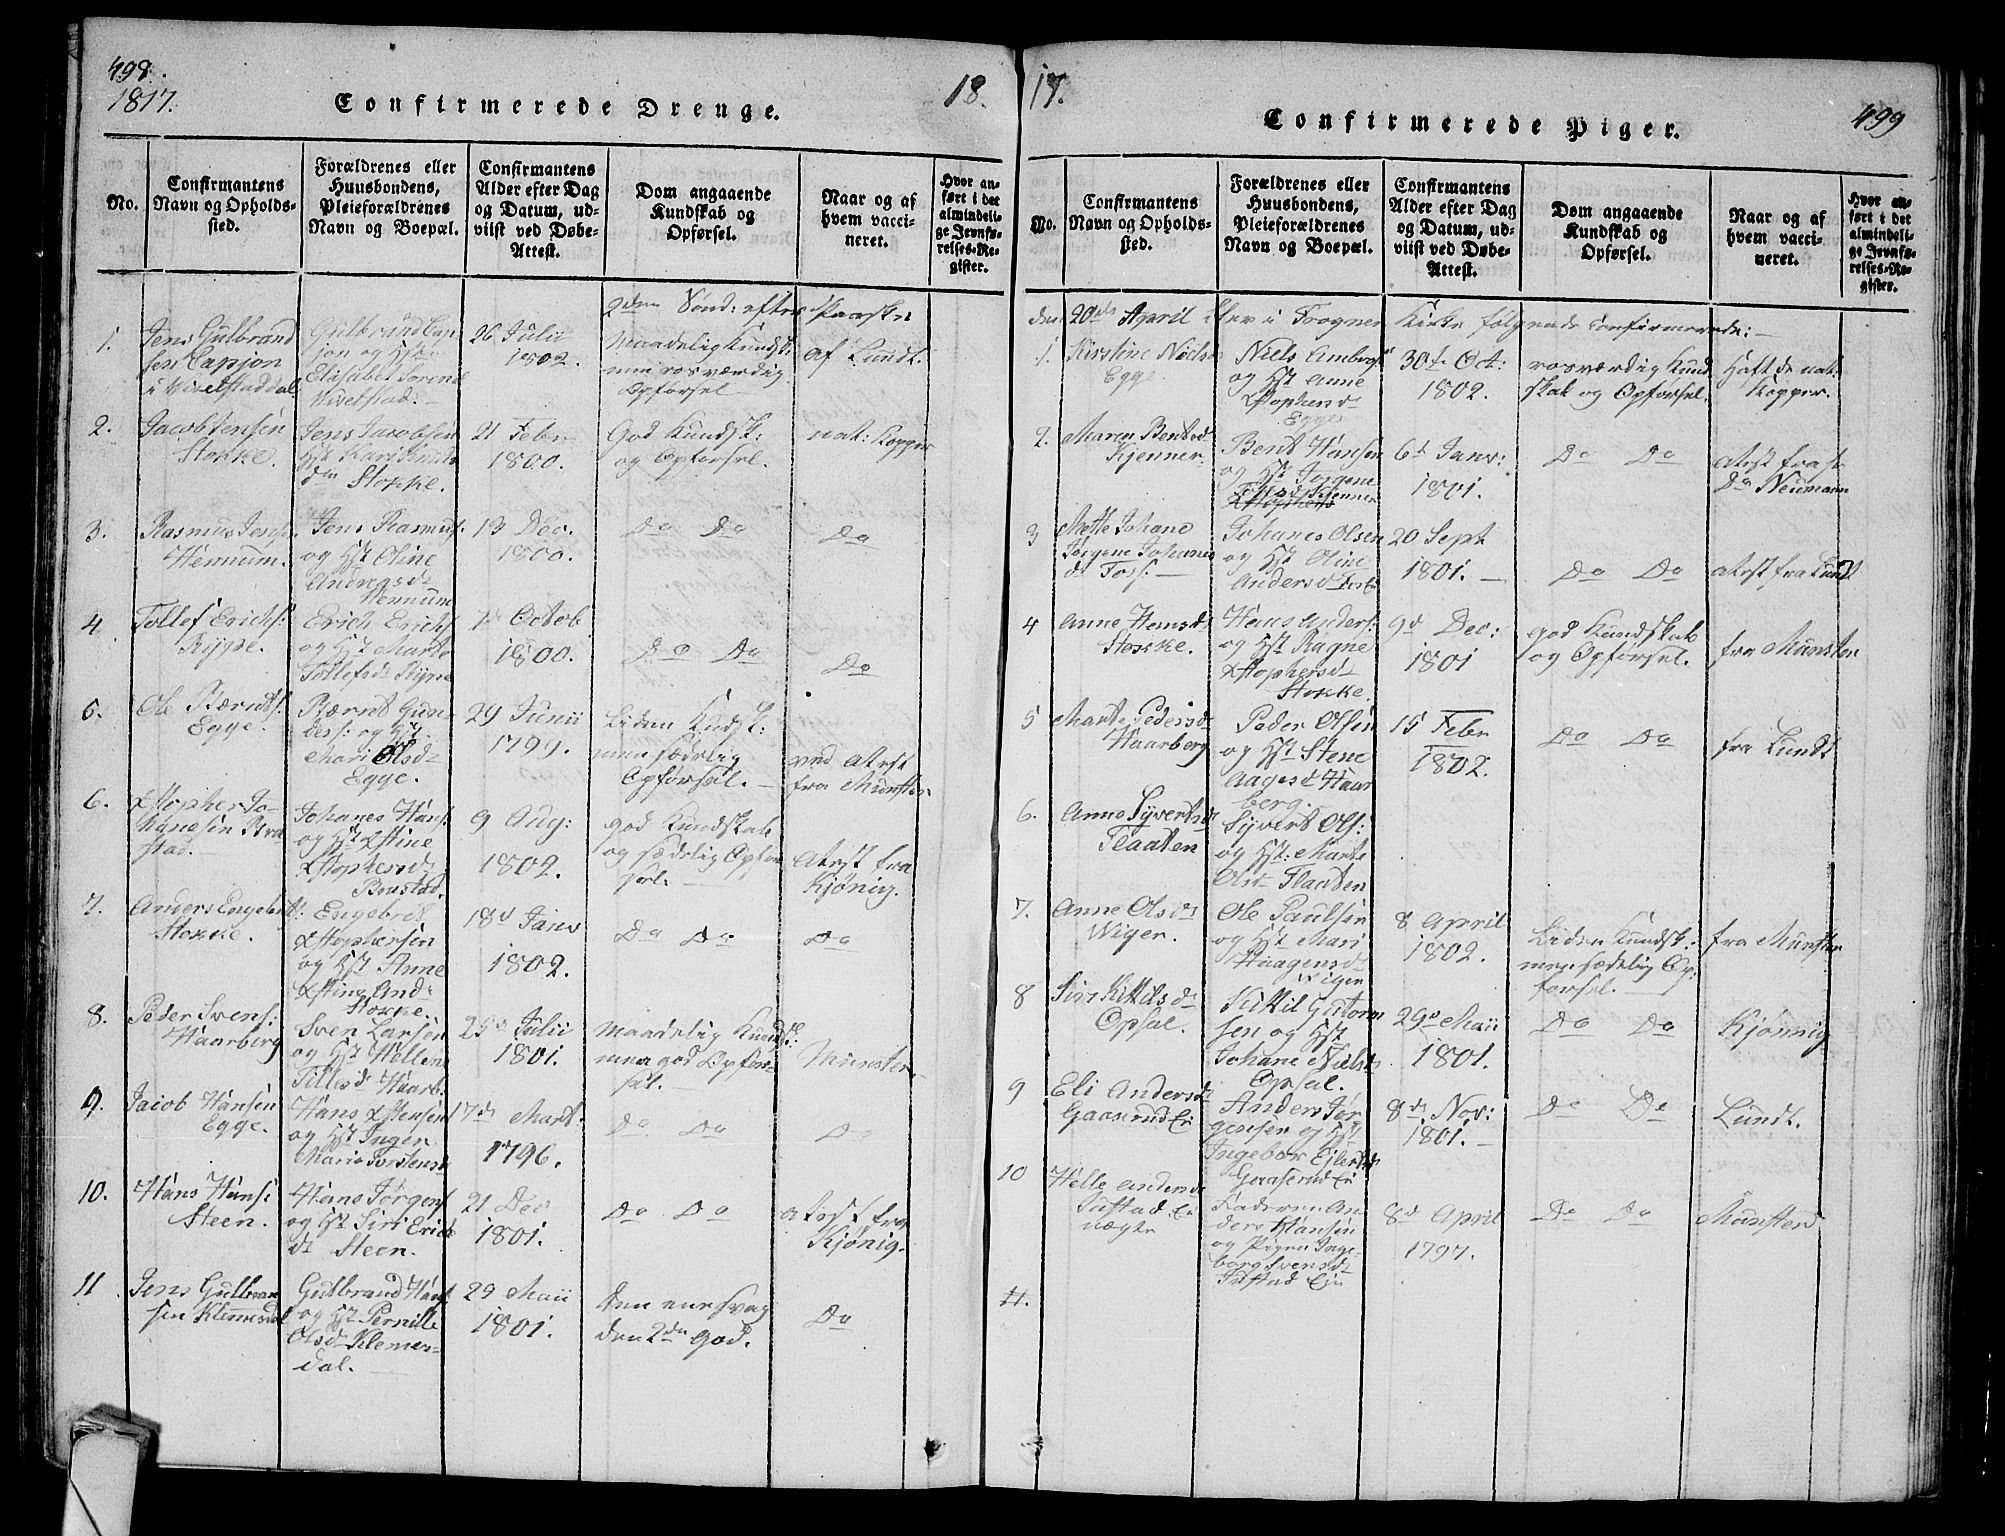 498.
1817.
Confirmerede Drenge.
18.
No.
Confirmantens
Navn og Opholds-
sted.
Forældrenes eller
Huusbondens,
Pleieforældrenes
Navn og Boepæl.
Confirmantens
Alder efter Dag
og Datum, ud-
viist ved Døbe-
Attest.
Dom angaaende
Kundskab og
Opførsel.
Naar og af
hvem vacci-
neret.
Hvor an-
ført i det
almindeli-
ge Jevnfø-
relses-Re-
gister.
2den Sønd: efter Paaske
1.
Jens Gulbrand
sen Capjon
i Wivelstaddal
Gulbrand Cap
jon og Hst
Elisabet Sørens
Wivelstad.
26 Julii
1802.
Maadelig Kundsk:
men rosværdig
Opførsel
af Lundt.
2.
Jacob Jensen
Stokke.
Jens Jacobsen
Hst Kari
Stokke.
21 Febr
1800.
God Kundsk:
og Opførsel.
nat: Kopper
3.
Rasmus Jens:
Hennum.
Jens Rasmus:
og Hst Oline
Andreasd
Hennum
13 Dec.
1800.
Do Do
Do
4.
Tollef Erichs:
Rype.
Erich Erichs
og Hst Marte
Tollefsd Rype
Octob
1800.
Do Do
Do
5.
Ole Bærndts:
Egge.
Bærnt Gun-
ders: og Hst
Mari Olsd
Egge.
29 Junii
1799.
Liden Kundsk:
men sædelig
Opførsel.
ved Atest
fra Münster
6.
Xstopher Jo-
hanesen
stad.
Johanes Hans:
og Hst Xstine
Xstophersd
9 Aug:
1802.
God Kundskab
og sædelig Opfør
sel.
Atest fra
Kjønig.
7.
Anders Engebrets:
Stokke.
Engebret
Xstophersen
og Hst Anne
Xstine And:
Stokke.
18d Janv
1802.
Do Do
Do
8.
Peder Svens:
Haarberg
Sven Larsen
og Hst Hellene
Tillesd Haarb:
25d Julii
1801.
Maadelig Kundsk:
men god Opfør-
sel.
Münster
9.
Jacob Hansen
Egge.
Hans Xstensen
og Hst Inger
Marie Torstensd
17de Mart
1796.
Do Do
Do
10.
Hans Hans:
Steen.
Hans Jørgens
og Hst Siri Erich
d: Steen.
21 Dec
1801.
Do Do
Atest fra
Kjønig.
11
Jens Gulbran
sen Klemesdal
Gulbrand Hans
og Hst Pernille
Olsd Klemer-
dal.
29 Maii
1801.
Den ene svag
den 2den God.
Do
17.
Confirmerede Piger.
499
No.
Confirmantens
Navn og Opholds-
sted.
Forældrenes eller
Huusbondens,
Pleieforældrenes
Navn og Boepæl.
Confirmantens
Alder efter Dag
og Datum, ud-
viist ved Døbe-
Attest.
Dom angaaende
Kundskab og
Opførsel.
Naar og af
hvem vacci-
neret.
Hvor an-
ført i det
almindeli-
ge Jevnfø-
relses-Re-
gister.
den 20de April blev i Frogner Kirke følgende Confirmerede:
1.
Kirstine Niels
Egge
Niels
og Hst Anne
Xstophersd
Egge
30t Oct:
1802.
rosværdig Kund
skab og Opførsel.
Haft de nat:
Kopper.
2.
Maren Bentsd
Kjenner.
Bent Hansen
og Hst Jørgine
Kjenner
6t Janv:
1801.
Do Do
Atest fra
Dr Neumann
3
Mette Johane
Jørgene Johanes
d: Foss:
Johanes Olsen
og Hst Oline
Andersd Foss
20 Sept
1801.
Do Do
Atest fra Lundt
4
Anne Hansd
Stokke.
Hans Anders:
og Hst Ragne
Xstophersd
Stokke.
9d Dec:
1801
God Kundskab
og Opførsel.
fra Münster
5
Marte Pedersd
Haarberg
Peder Olsen
og Hst Stene
Aagesd Haar
berg.
15 Febr
1802.
Do Do
fra Lundt
6.
Anne Syvertsd
Flaaten
Syvert Ols:
og Hst: Marte
Olsd Flaaten
7.
Anne Olsd
Wiger.
Ole Paulsen
og Hst Mari
Haagensd
Wiger
8 April
1802.
Liden Kundsk:
men sædelig Op
førsel.
fra Münster
8
Siri Kittilsd
Opsal.
Kittil Gutorm
sen og Hst
Johane Nielsd
Opsal.
29d Maii
1801.
Do Do
Kjønnig
9
Eli Andersd
Gaaserud Ei
Anders Jør
gensen og Hst
Ingebor Ejlertsd
Gaaserud Ei
8de Nov:
1801.
Do Do
Lundt.
10
Helle Andersd
Justad Ei
uægte
Faderen An
ders Hansen
og Pigen Inge-
borg Svensd
Justad Eje
8d April
1797.
Do Do
Münster
11.